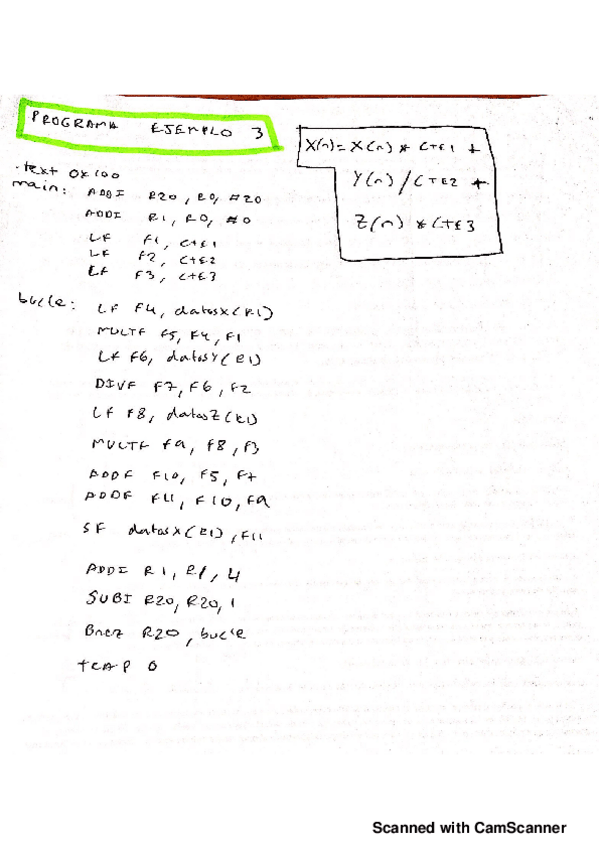 PROGRAMA EJEMPLO 3
X(n) = X(n) * CTE1 +
Y(n) / CTE2 +
Z(n) * CTE3
.text 0x100
main: ADDI R20, R0, #20
ADDI R1, R0, #0
LF F1, CTE1
LF F2, CTE2
LF F3, CTE3
bucle: LF F4, datosX(R1)
MULTF F5, F4, F1
LF F6, datosY(R1)
DIVF F7, F6, F2
LF F8, datosZ(R1)
MULTF F9, F8, F3
ADDF F10, F5, F7
ADDF F11, F10, F9
SF datosX(R1), F11
ADDI R1, R1, 4
SUBI R20, R20, 1
Bnez R20, bucle
trap 0
Scanned with CamScanner